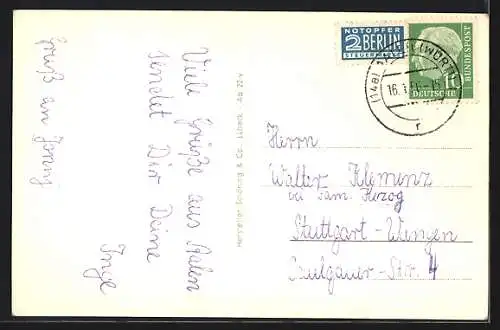 Gruß an Jonny
Viele Grüße aus Aalen
sendet Dir Deine
Inge
Hersteller Schöning & Co., Lübeck
NOTOPFER
2 BERLIN
STEUERMARKE
DEUTSCHE
BUNDESPOST
10
(14a) (WÜRTT)
16.
Herrn
Walter Klemenz
bei Fam. Herzog
Stuttgart-Wangen
Str. 4